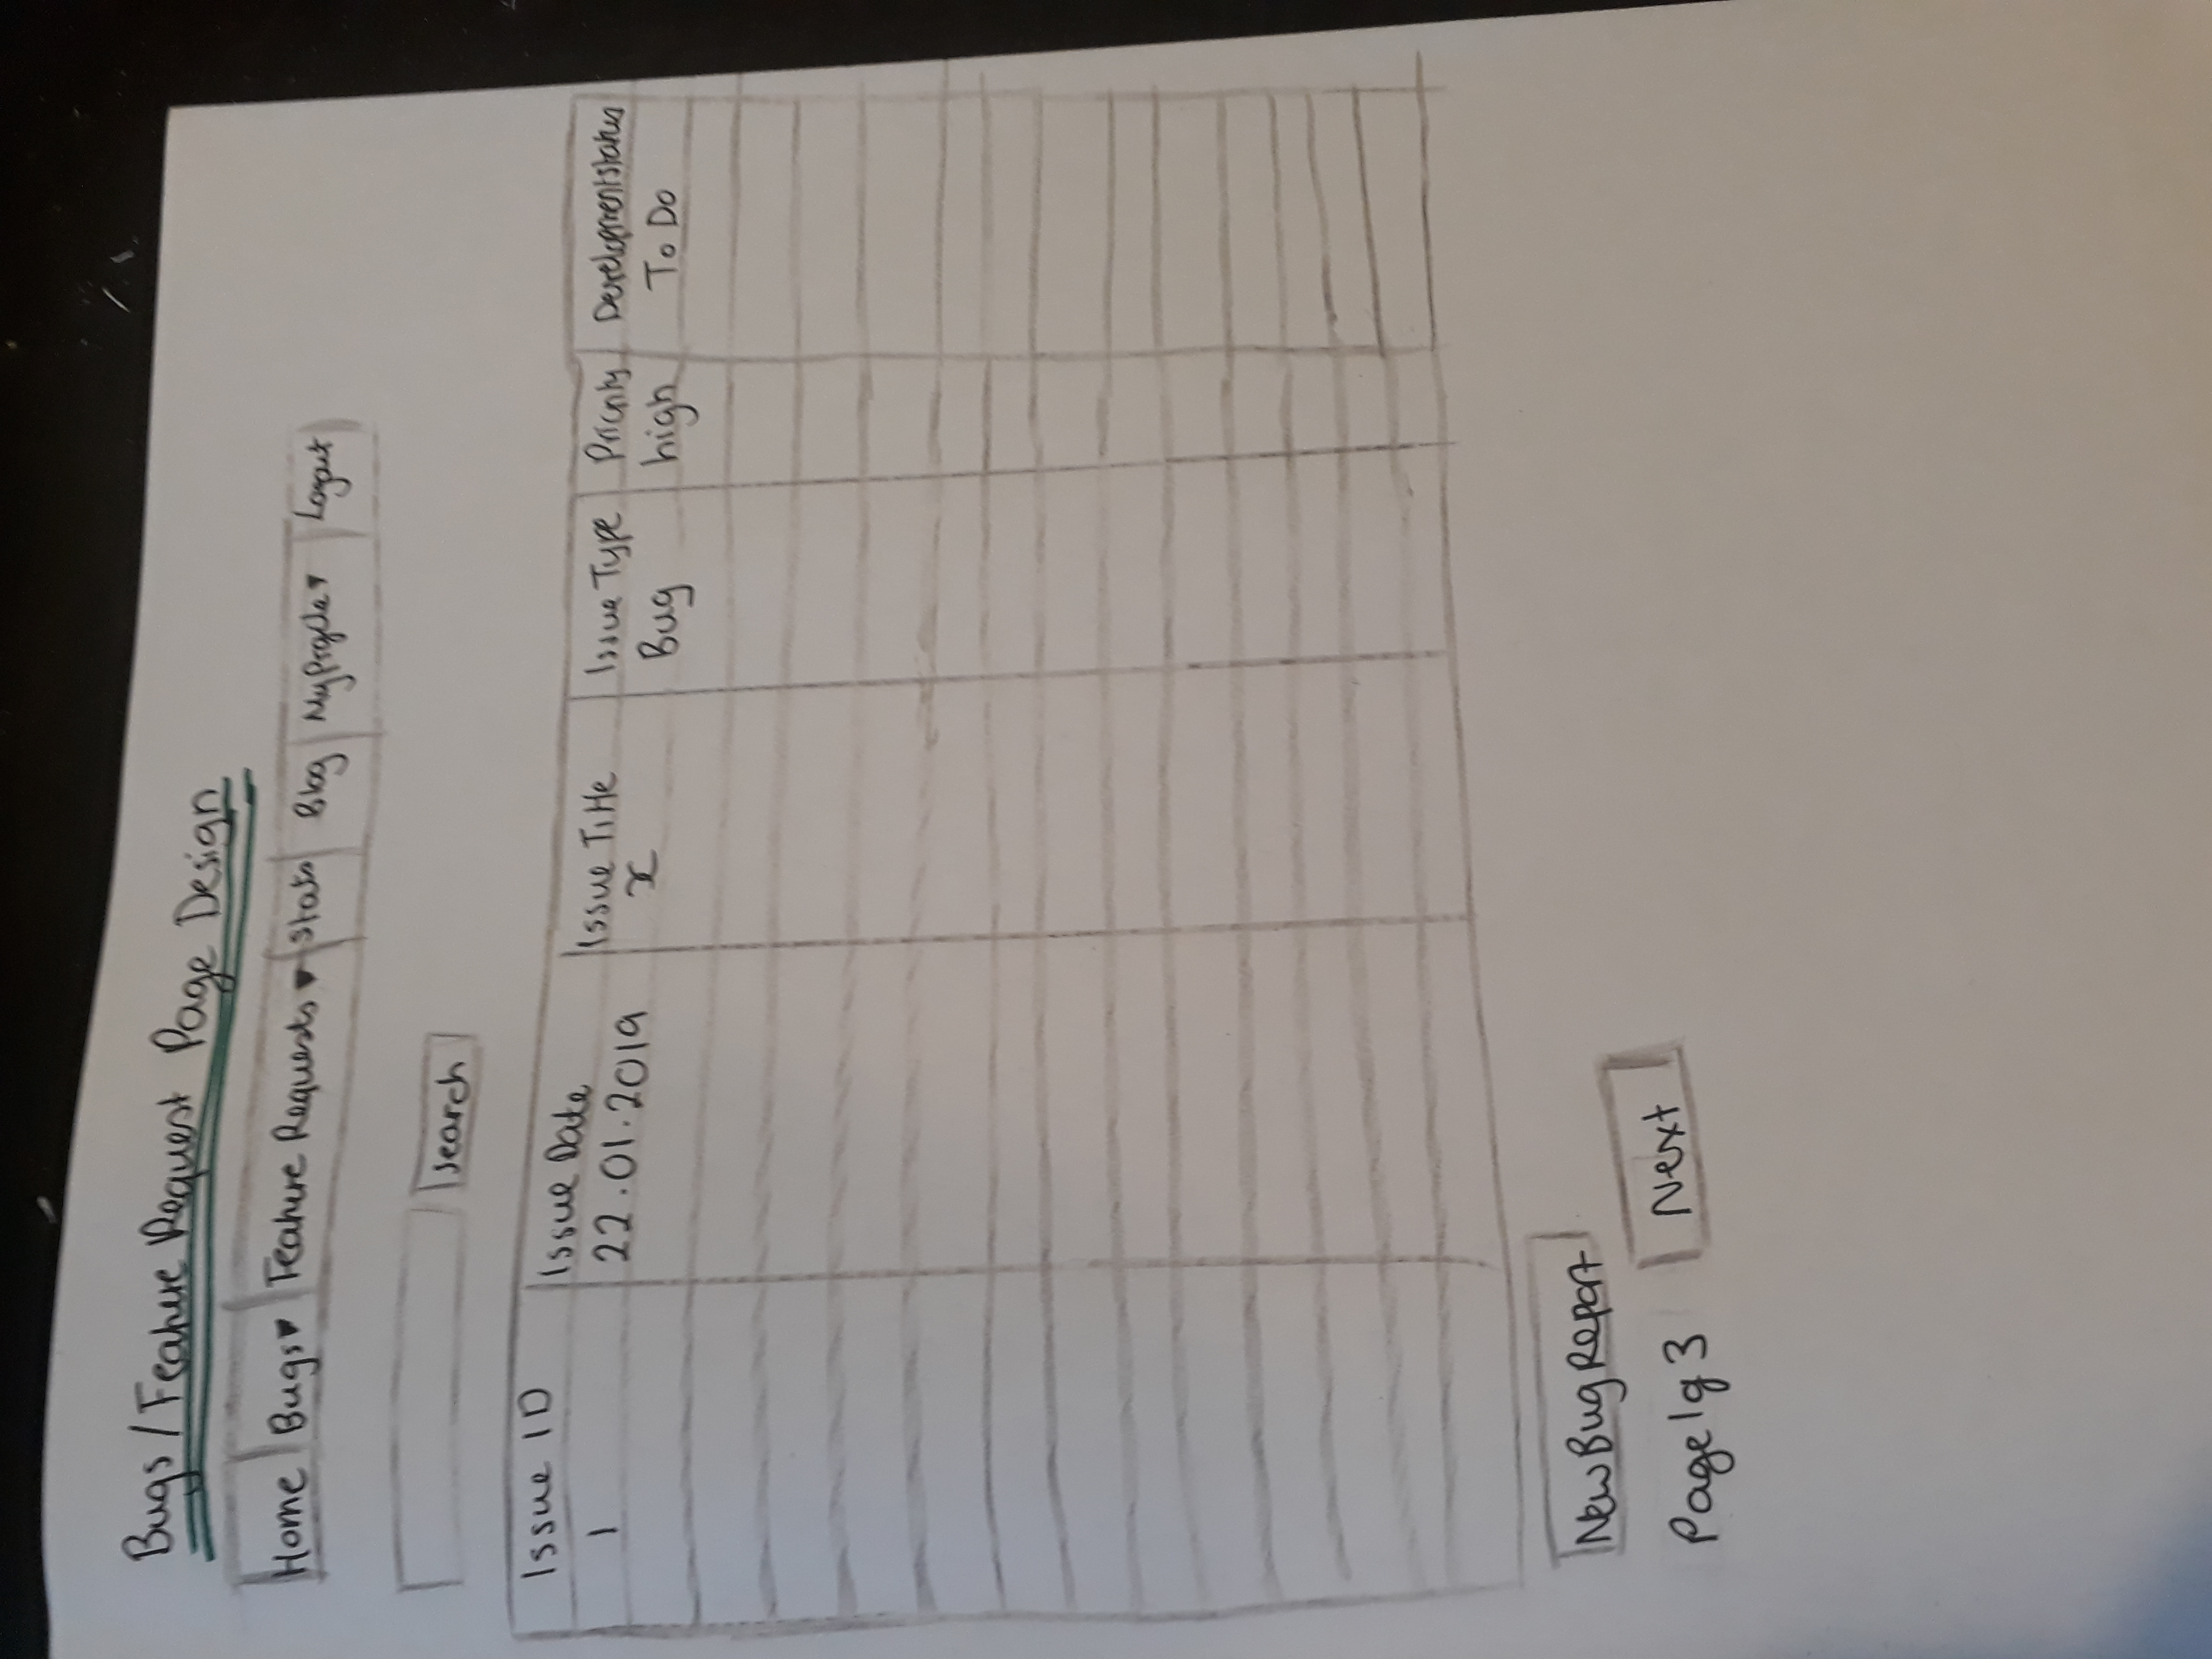 Bugs / Feature Request Page Design
Home Bugs Feature Requests Stats Blog My Profile Logout
Search
Issue ID Issue Date Issue Title Issue Type Priority Development status
1 22.01.2019 x Bug high To Do
New Bug Report
Page 1 of 3 Next